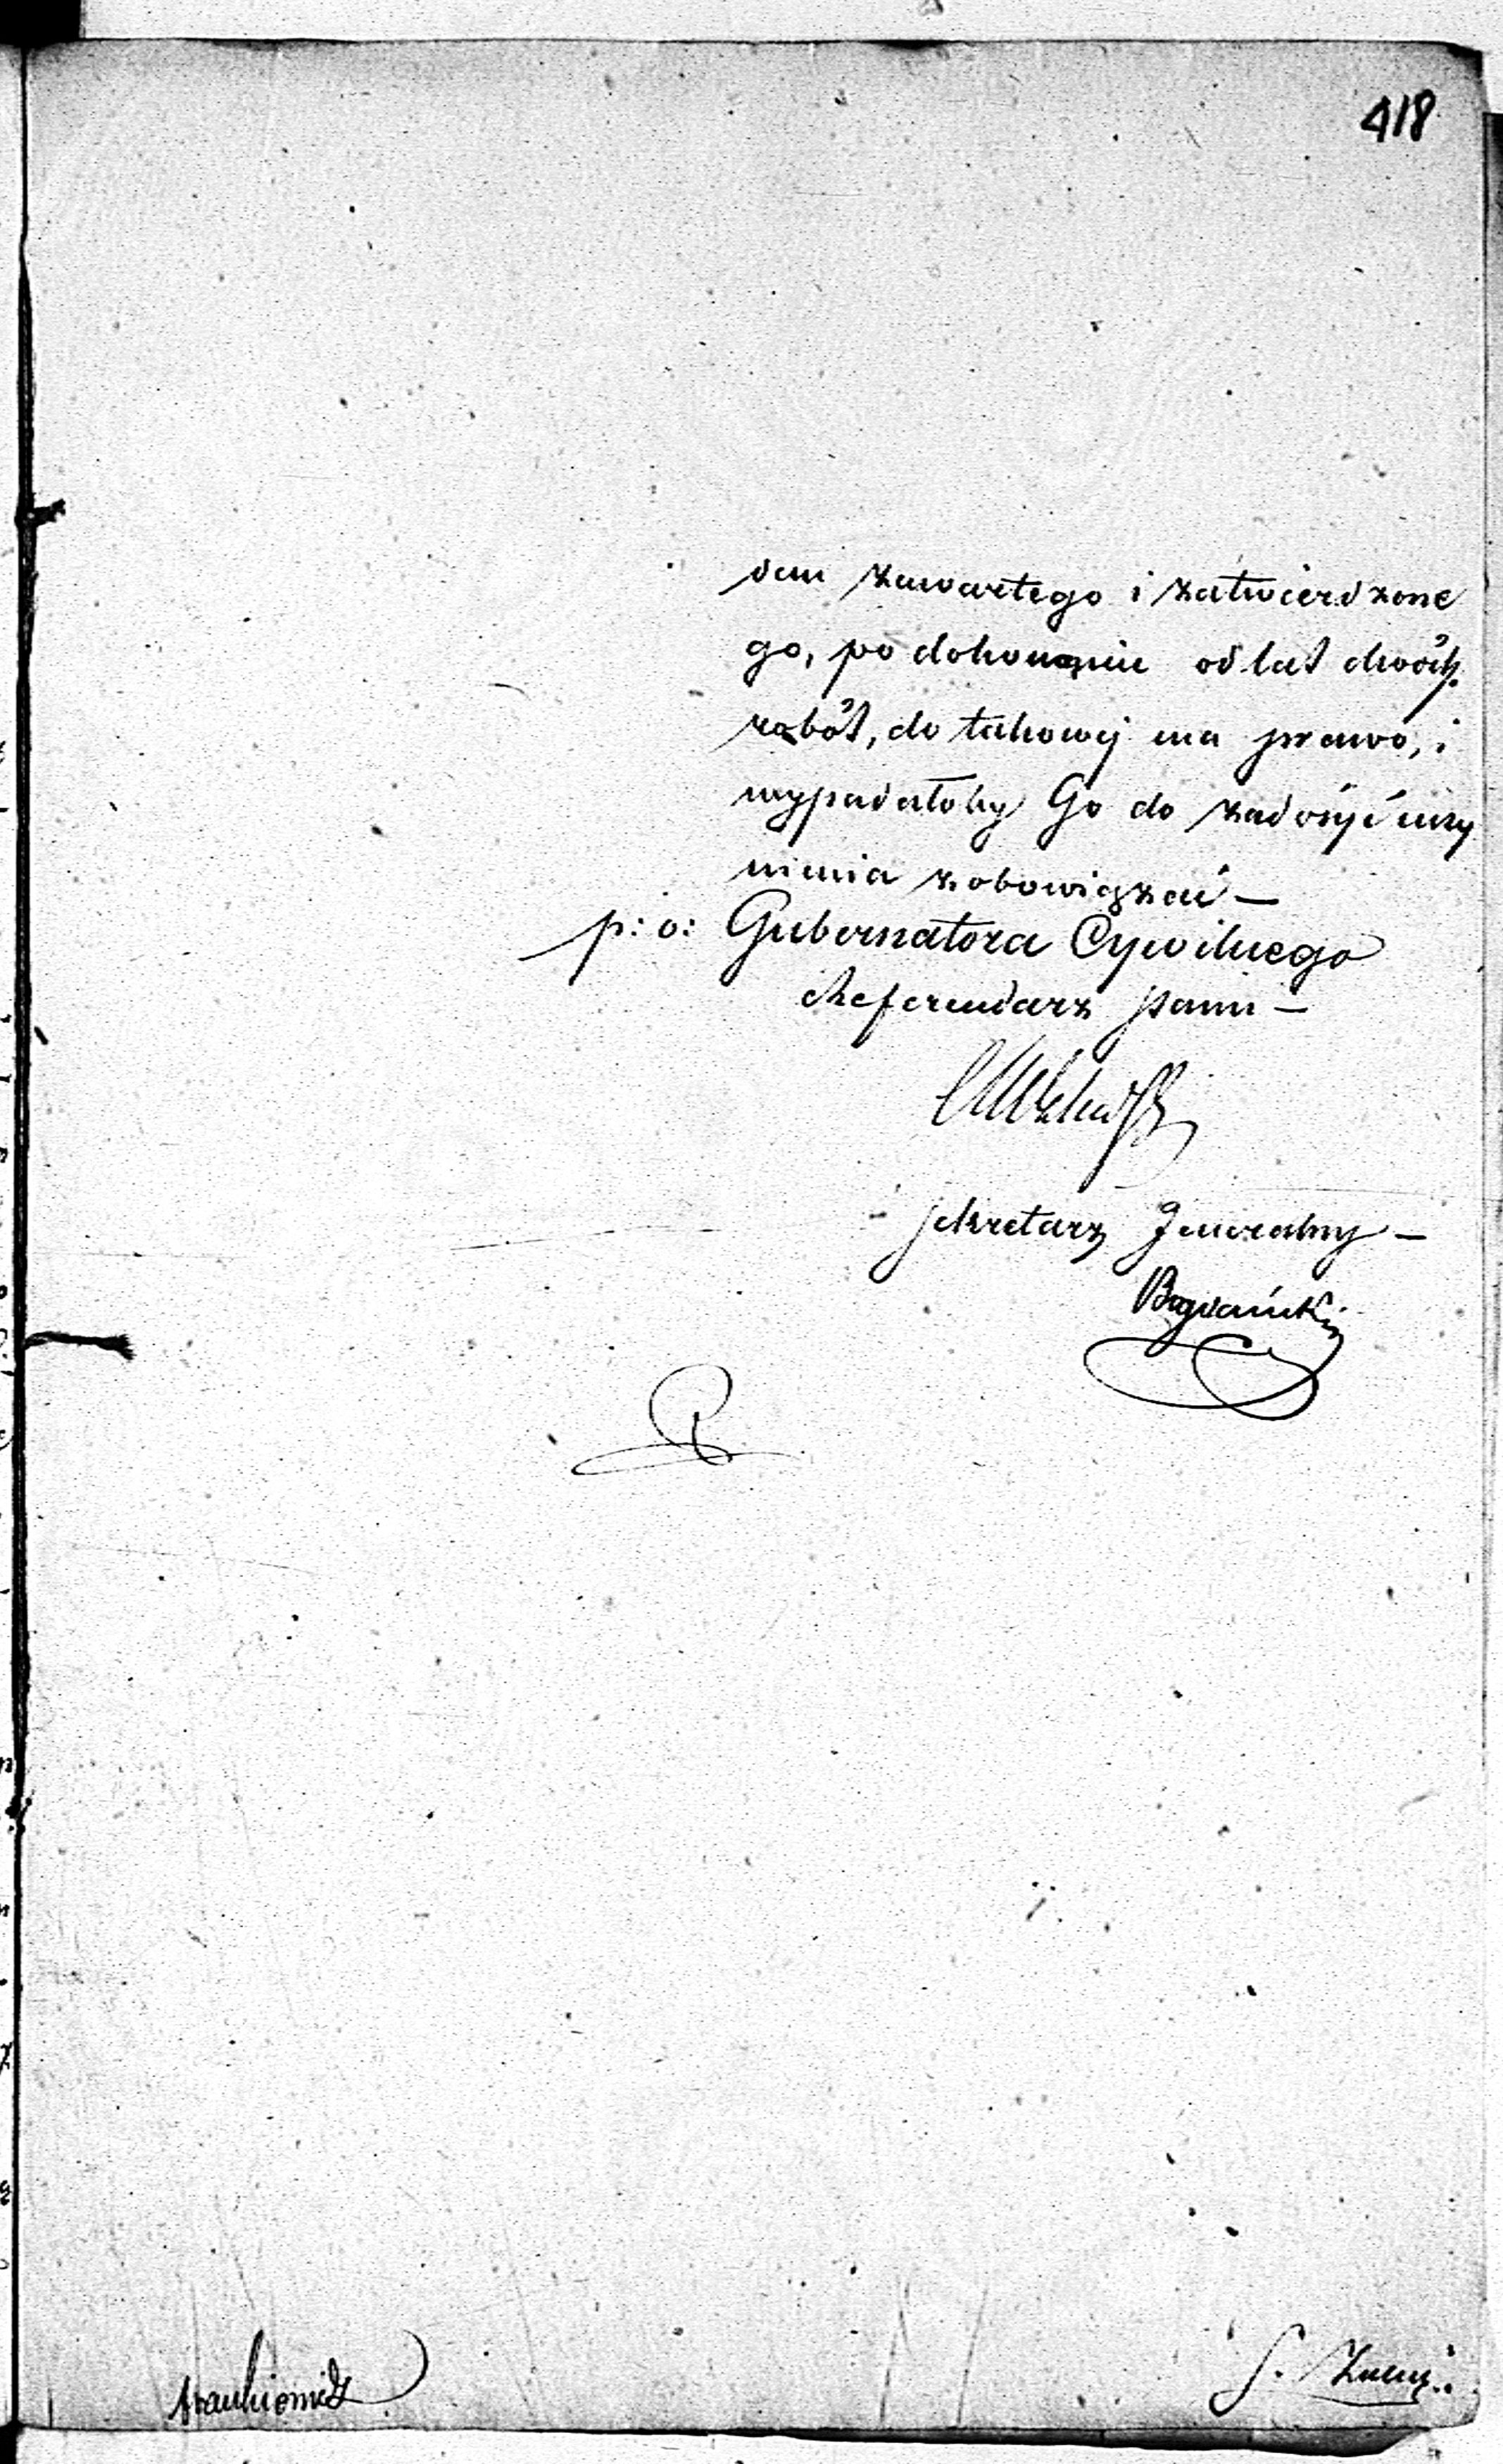 418
dem zawartego i zatwierdzone
go, po dokonaniu od lat dwóch
robót, do takowej ma prawo, i
wypadałoby Go do zadosyć uczy
nienia zobowiązać —
p: o: Gubernatora Cywilnego
Referendarz Stanu —
Sekretarz Jeneralny —
Stankiewicz